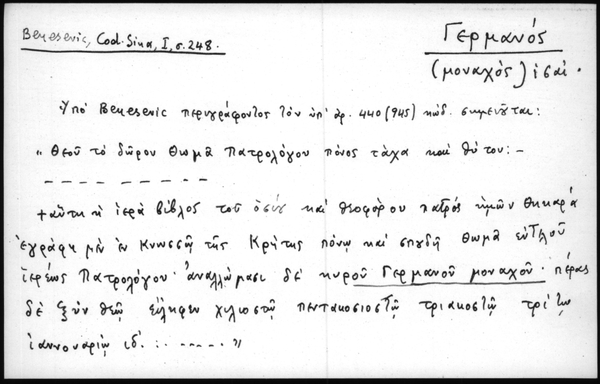 Benesevic, Cod. Sina, I, σ. 248.
Γερμανός
(μοναχός) ις΄ αἰ.
Ὑπό Benesevic περιγράφοντος τόν ὑπ' ἀρ. 440 (945) κώδ. σημειοῦται:
„ Θεοῦ τό δῶρον Θωμᾶ Πατρολόγου πόνος τάχα καί θύτου: –
– – – – – – – – –
+ αὕτη ἡ ἱερά βίβλος τοῦ ὁσίου καί θεοφόρου πατρός ἡμῶν Θηκαρᾶ
ἐγράφη μέν ἐν Κνωσσῇ τῆς Κρήτης πόνῳ καί σπουδῇ Θωμᾶ εὐτελοῦ
ἱερέως Πατρολόγου· ἀναλλώμασι δέ κυροῦ Γερμανοῦ μοναχοῦ· πέρας
δέ ξύν θεῷ εἴληφεν χιλιοστῷ πεντακοσιοστῷ τριακοστῷ τρίτῳ
ἰαννουαρίῳ ιδ΄. : . – – – . . „